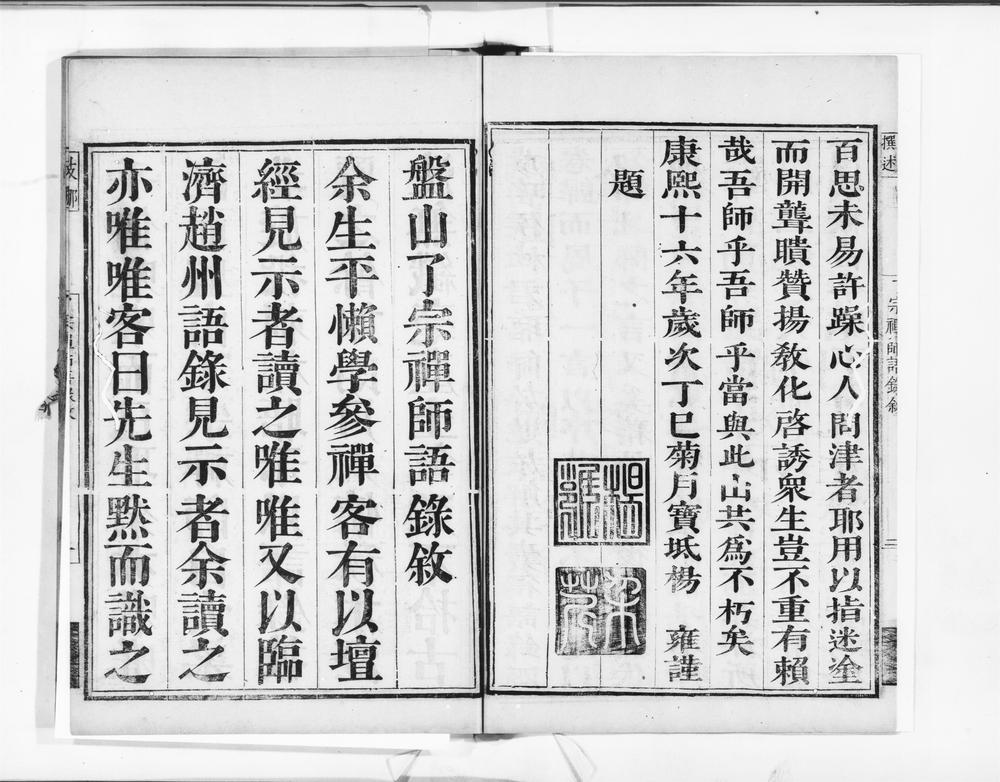 撰述
宗禪師語錄敘
二
百思未易許躁心人問津者耶用以指迷塗
而開聾瞶贊揚教化啓誘衆生豈不重有賴
哉吾師乎吾師乎當與此山共為不朽矣
康熙十六年歲次丁巳菊月寶坻楊 雍謹
題
盤山了宗禪師語錄敘
余生平懶學參禪客有以壇
經見示者讀之唯唯又以臨
濟趙州語錄見示者余讀之
亦唯唯客曰先生默而識之